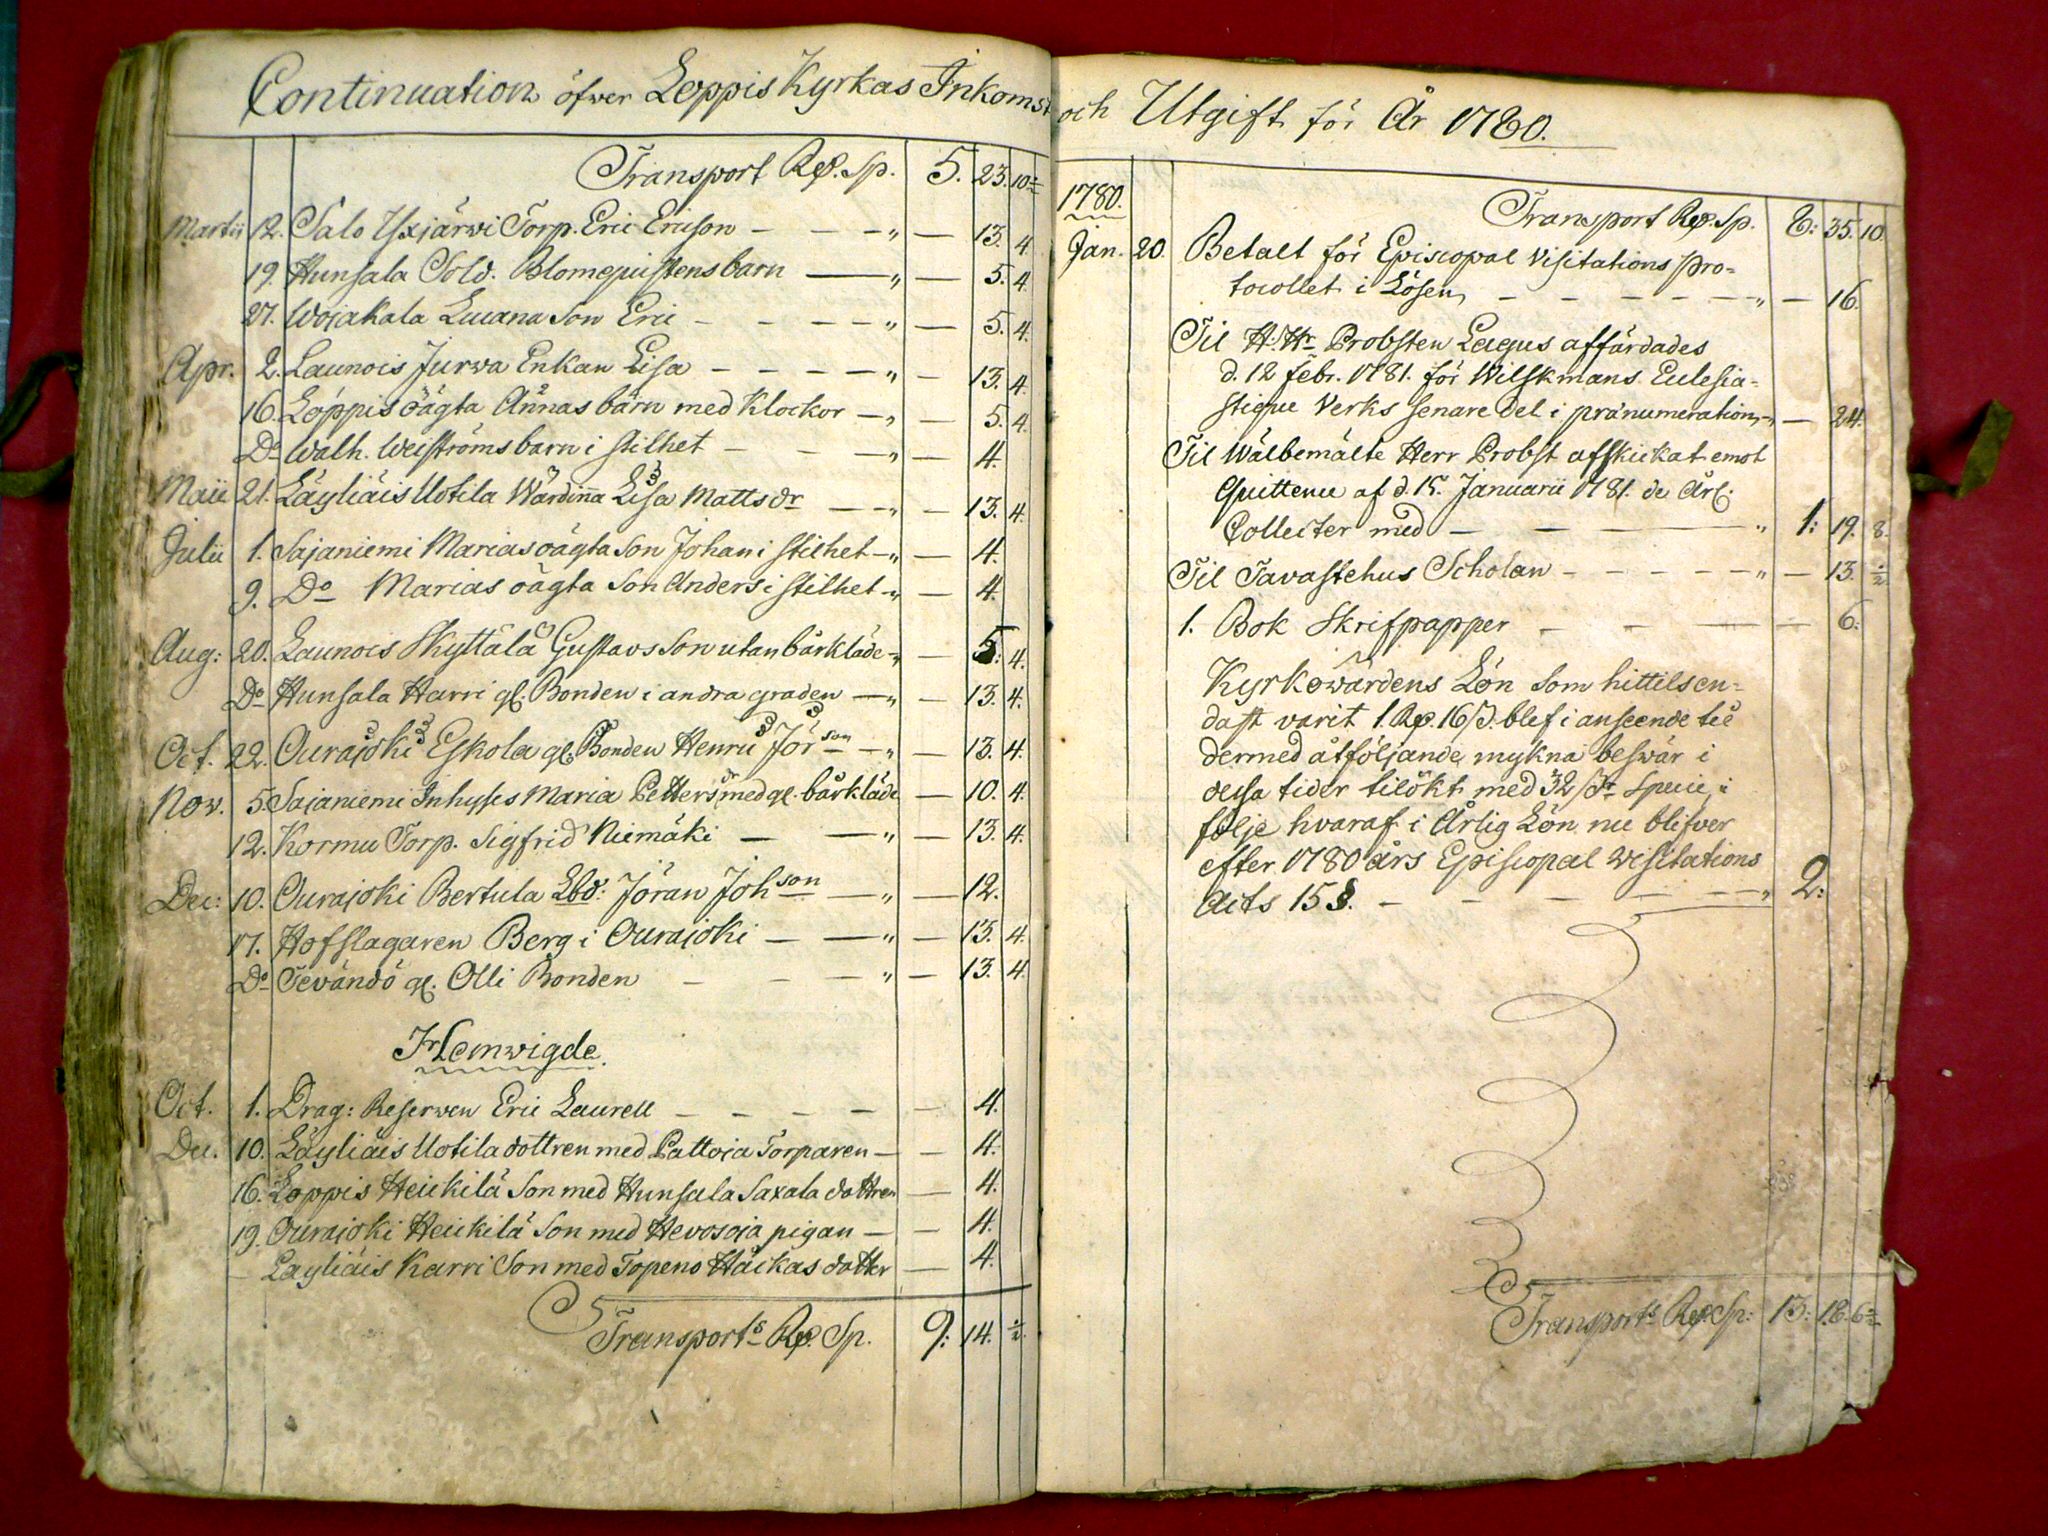 Continuation öfwer Loppis Kyrkas Inkomst
Transport Rd. Sp. 5. 23. 10 ½
Martii 12. Salo Yxjärwi Torp. Eric Ericson — — — „ — 13. 4.
19. Hunsala Sold. Blomqvistens barn — „ — 5. 4.
27. Wojakala Lucana Son Eric — — — — „ — 5. 4.
Apr. 2. Launois Jurwa Enkan Lisa — — — — „ — 13. 4.
16. Loppis oägta Annas barn med Klockor — „ — 5. 4.
Do Walh. Weiströms barn i stilhet — — — „ — 4.
Maii 21. Läyliäis Uotila Wärdinna Lisa Mattsdr — — „ — 13. 4.
Julii 1. Sajaniemi Marias oägta Son Johan i stilhet — „ — 4.
9. Do Marias oägta Son Anders i stilhet — „ — 4.
Aug: 20. Launois Skyttälä Gustavs Son utan bårkläde — „ — 5: 4.
Do Hunsala Harri gl. Bonden i andra graden — „ — 13. 4.
Oct. 22. Ourajoki Eskola gl. Bonden Henric Jörson — „ — 13. 4.
Nov. 5. Sajaniemi Inhyses Maria Pettersdr med gl. bårkläde — 10. 4.
12. Kormu Torp. Sigfrid Niemäki — — „ — 13. 4.
Dec: 10. Ourajoki Bertula Lbd: Jöran Johson — „ — 12.
17. Hofslagaren Berg i Ourajoki — — „ — 13. 4.
Do Tevändö gl. Olli Bonden — — — „ — 13. 4.
Hemwigde.
Oct. 1. Drag: Reserven Eric Laurell — — — — — 4.
Dec. 10. Läyliäis Uotila dottren med Pattoja Torparen — — 4.
16. Loppis Heickilä Son med Hunsala Saxala dottren — 4.
19. Ourajoki Heickilä Son med Hevosoja pigan — — 4.
— Läyliäis Karri Son med Topeno Häickas dotter — 4.
Transports Rd. Sp. 9: 14. ½.
och Utgift för År 1780.
1780. Transport Rd. Sp. 8: 35. 10.
Jan. 20. Betalt för Episcopal Visitations Pro-
tocollet i Lösen — — — — — — „ — 16.
Til H. Hr Probsten Lagus affärdades
d. 12 febr. 1781. för Wilskmans Eclesia-
stique Verks senare del i pränumeration — „ — 24.
Til Wälbemälte Herr Probst afskickat emot
Quittence af d. 15. Januarii 1781. de Årl.
Collecter med — — — — „ 1: 19. 8.
Til Tavastehus Scholan — — — — — „ — 13. ½
1. Bok Skrifpapper — — — — 6.
Kyrkowärdens Lön som hittilsen-
dast varit 1. Rd. 16 s. blef i anseende til
dermed åtföljande mykna beswär i
dessa tider tilökt med 32 sr Specie, i
följe hvaraf i Årlig Lön nu blifver
efter 1780 års Episcopal Visitations
Acts 15 §. — — — — — — „ 2:
Transports Rd Sp: 13: 18. 6 ½